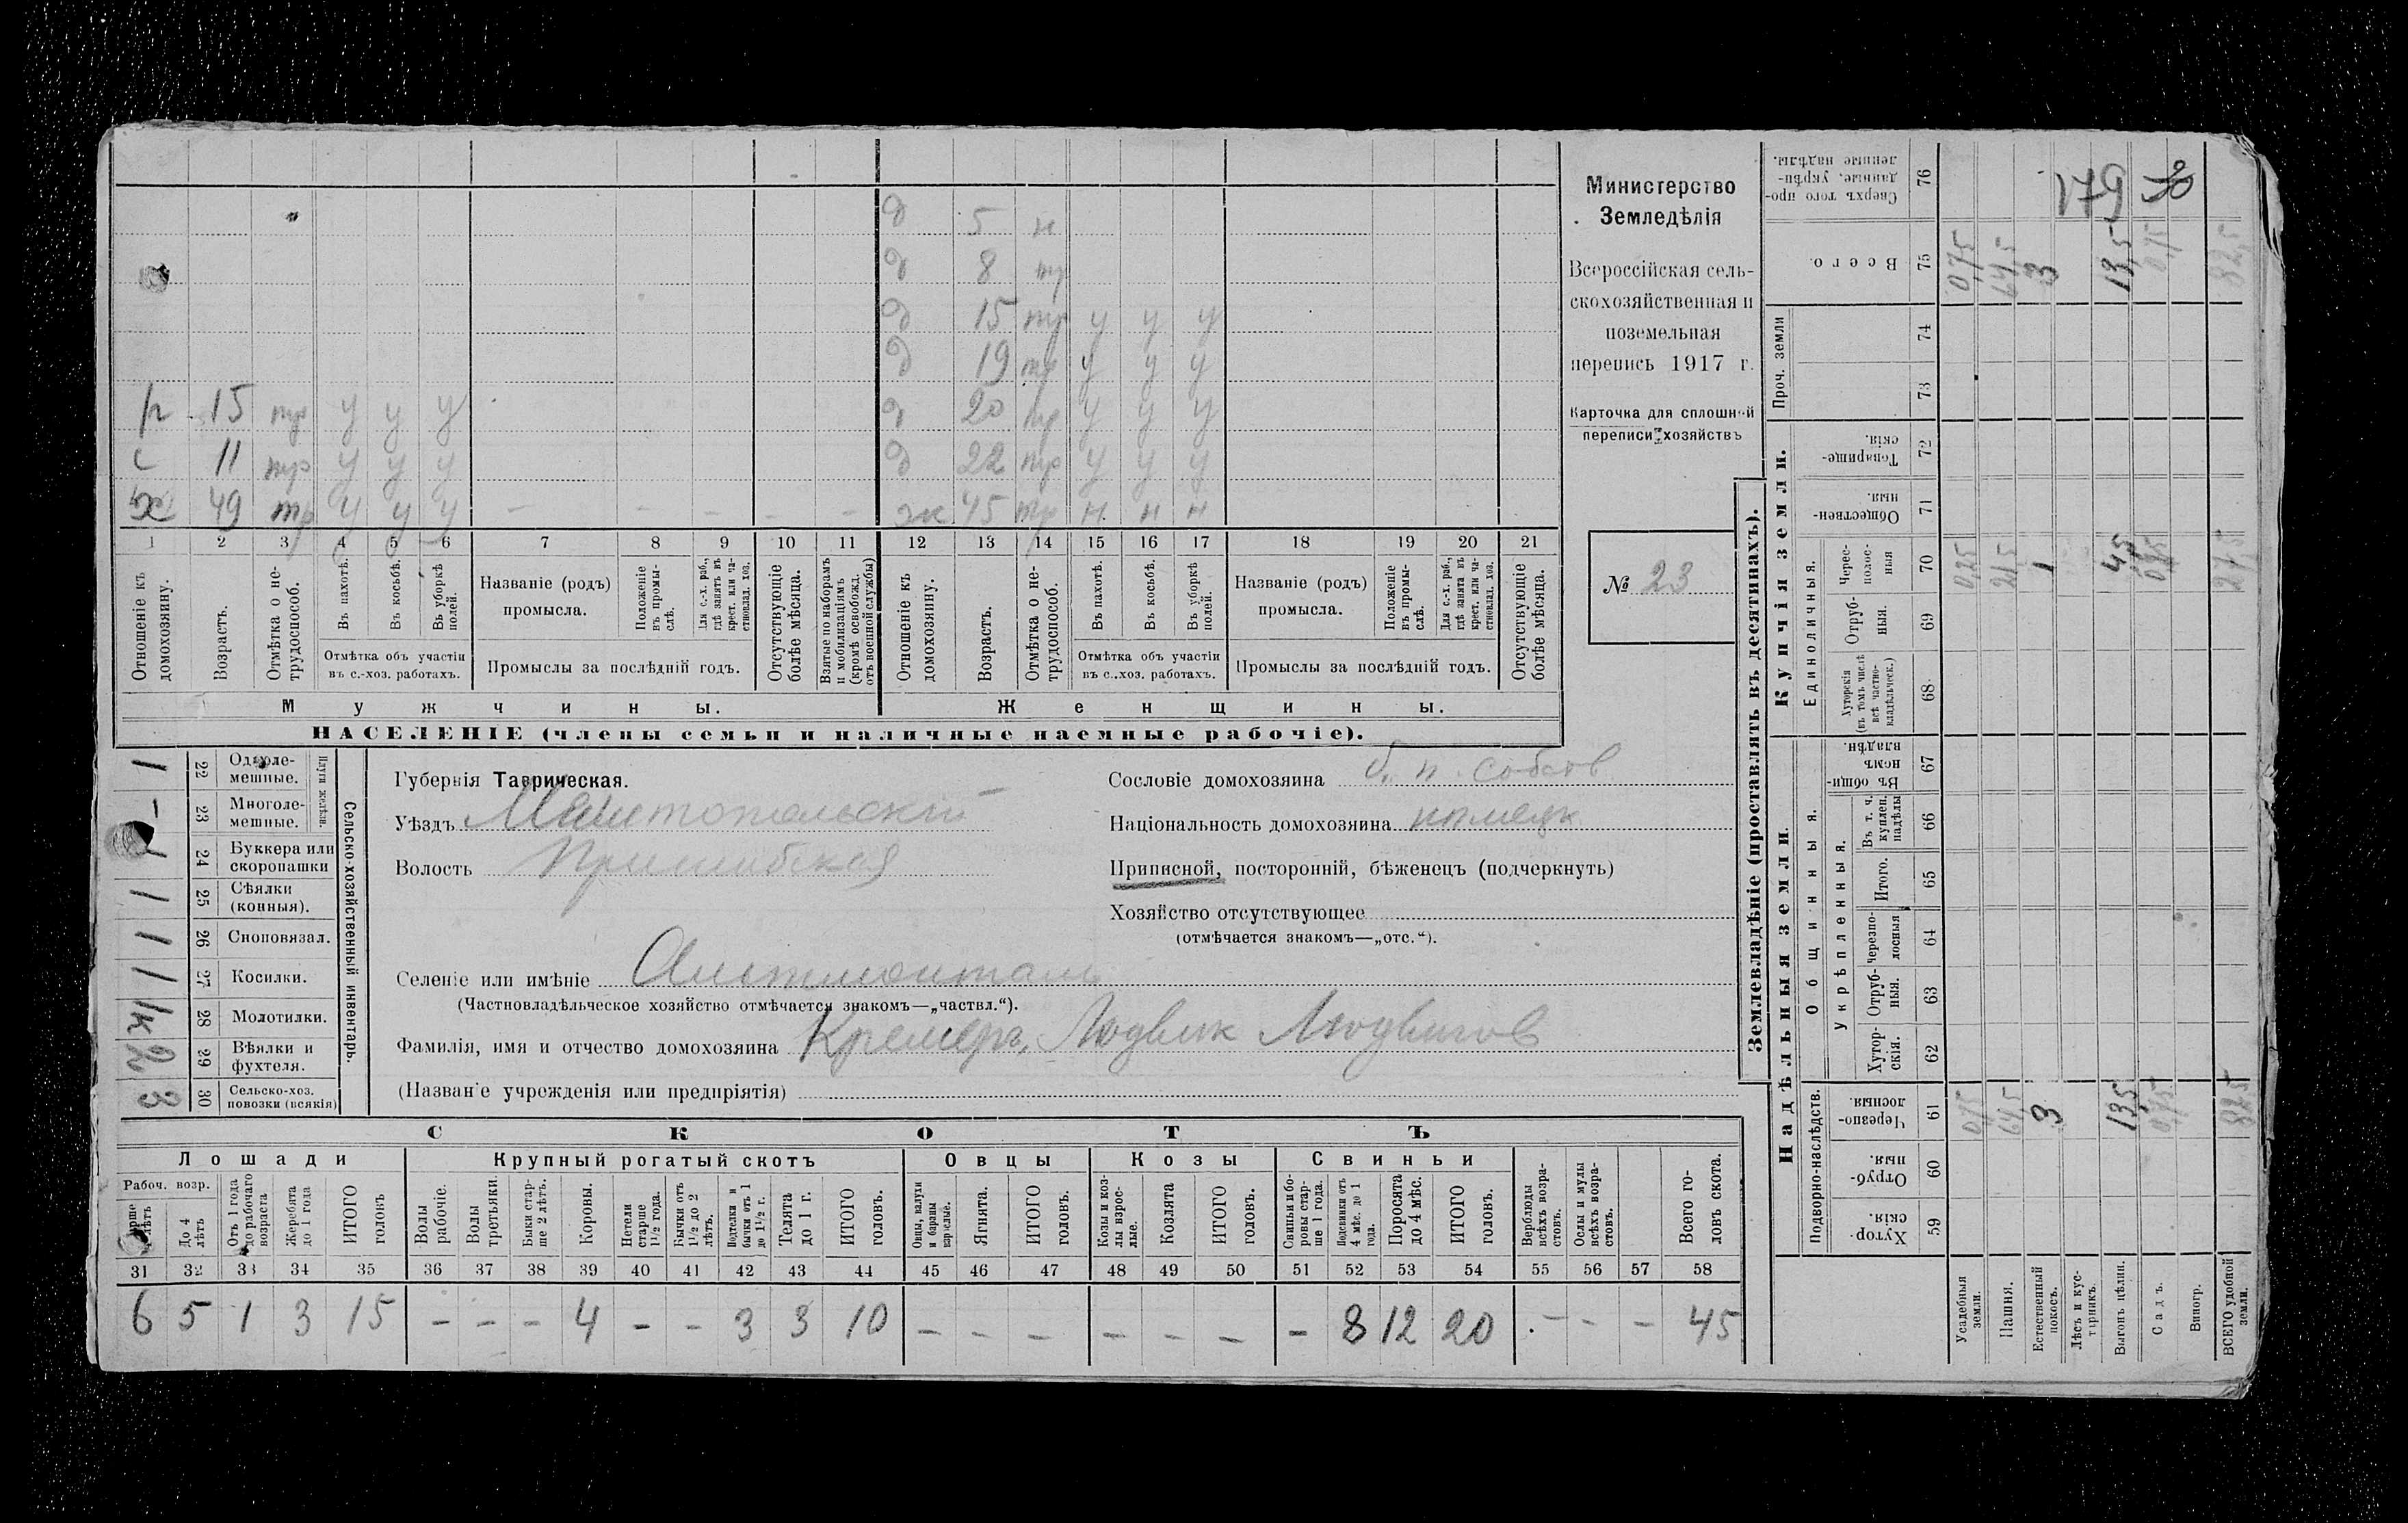 д 5 н
д 8 тр
д 15 тр у у у
д 19 тр у у у
р 15 тр у у у д 20 тр у у у
с 11 тр у у у д 22 тр у у у
х 49 тр у у у – – – – – ж 45 тр н н н
1 2 3 4 5 6 7 8 9 10 11 12 13 14 15 16 17 18 19 20 21
Отношеніе къ домохозяину.
Возрастъ.
Отмѣтка о нетрудоспособ.
Въ пахотѣ.
Въ косьбѣ.
Въ уборкѣ полей.
Отмѣтка объ участіи въ с.-хоз. работахъ.
Названіе (родъ) промысла.
Положеніе въ промыслѣ.
Для с.-х. раб., гдѣ занятъ въ крест. или частновлад. хоз.
Промыслы за послѣдній годъ.
Отсутствующіе болѣе мѣсяца.
Взятые по наборамъ и мобилизаціямъ (кромѣ освобожд. отъ военной службы)
Отношеніе къ домохозяину.
Возрастъ.
Отмѣтка о нетрудоспособ.
Въ пахотѣ.
Въ косьбѣ.
Въ уборкѣ полей.
Отмѣтка объ участіи въ с.-хоз. работахъ.
Названіе (родъ) промысла.
Положеніе въ промыслѣ.
Для с.-х. раб., гдѣ занята въ крест. или частновлад. хоз.
Промыслы за послѣдній годъ.
Отсутствующіе болѣе мѣсяца.
Мужчины. Женщины.
НАСЕЛЕНІЕ (члены семьи и наличные наемные рабочіе).
Министерство
Земледѣлія
Всероссійская сель-
скохозяйственная и
поземельная
перепись 1917 г.
Карточка для сплошной
переписи хозяйствъ
№ 23
Сельско-хозяйственный инвентарь.
Плуги желѣзн.
1 22 Одноле-мешные.
– 23 Многоле-мешные.
1 24 Буккера или скоропашки
1 25 Сѣялки (конныя).
1 26 Сноповязал.
1 27 Косилки.
1к 28 Молотилки.
2 29 Вѣялки и фухтеля.
3 30 Сельско-хоз. повозки (всякія)
Губернія Таврическая.
Уѣздъ Мелитопольскій
Волость Пришибская
Селеніе или имѣніе
(Частновладѣльческое хозяйство отмѣчается знакомъ—„частвл.“).
Фамилія, имя и отчество домохозяина Кремеръ, Людвик Людвигов
(Названіе учрежденія или предпріятія)
Сословіе домохозяина п. собств
Національность домохозяина нѣмецк
Приписной, посторонній, бѣженецъ (подчеркнуть)
Хозяйство отсутствующее
(отмѣчается знакомъ—„отс.“).
СКОТЪ
Лошади Крупный рогатый скотъ Овцы Козы Свиньи
Рабоч. возр.
До 4 лѣтъ
Отъ 1 года до рабочаго возраста
Жеребята до 1 года
ИТОГО головъ
Волы рабочіе.
Волы третьяки.
Быки старше 2 лѣтъ.
Коровы.
Нетели старше 1½ года.
Бычки отъ 1½ до 2 лѣтъ.
Подтелки и бычки отъ 1 до 1½ г.
Телята до 1 г.
ИТОГО головъ.
Овцы, валухи и бараны взрослые.
Ягнята.
ИТОГО головъ.
Козы и козлы взрослые.
Козлята
ИТОГО головъ.
Свиньи и боровы старше 1 года.
Подсвинки отъ 4 мѣс. до 1 года.
Поросята до 4 мѣс.
ИТОГО головъ.
Верблюды всѣхъ возрастовъ.
Ослы и мулы всѣхъ возрастовъ.
Всего головъ скота.
31 32 33 34 35 36 37 38 39 40 41 42 43 44 45 46 47 48 49 50 51 52 53 54 55 56 57 58
6 5 1 3 15 – – – 4 – – 3 3 10 – – – – – – – 8 12 20 – – – 45
Землевладѣніе (проставлять въ десятинахъ).
Надѣльныя земли.
Купчія земли.
Проч. земли
Подворно-наслѣдств.
Общинныя.
Укрѣпленныя.
Единоличныя.
Хуторскія. 59
Отрубныя. 60
Черезполосныя. 61
Хуторскія. 62
Отрубныя. 63
черезполосныя 64
Итого. 65
Въ т. ч. куплен. надѣлы 66
Въ общинномъ владѣн. 67
Хуторскія (въ томъ числѣ всѣ частновладѣльческ.) 68
Отрубныя. 69
Черезполосныя 70
Общественныя. 71
Товарищескія. 72
73
74
Всего. 75
Сверхъ того проданные, укрѣпленные надѣлы. 76
Усадебныя земли. 0,75 0,25 0,75
Пашня. 64,5 21,5 64,5
Естественный покосъ. 3 1 3
Лѣсъ и кустарникъ.
Выгонъ цѣлин. 13,5 4,5 13,5
Садъ. 0,75 0,75
Виногр.
ВСЕГО удобной земли. 82,5 27,5 82,5